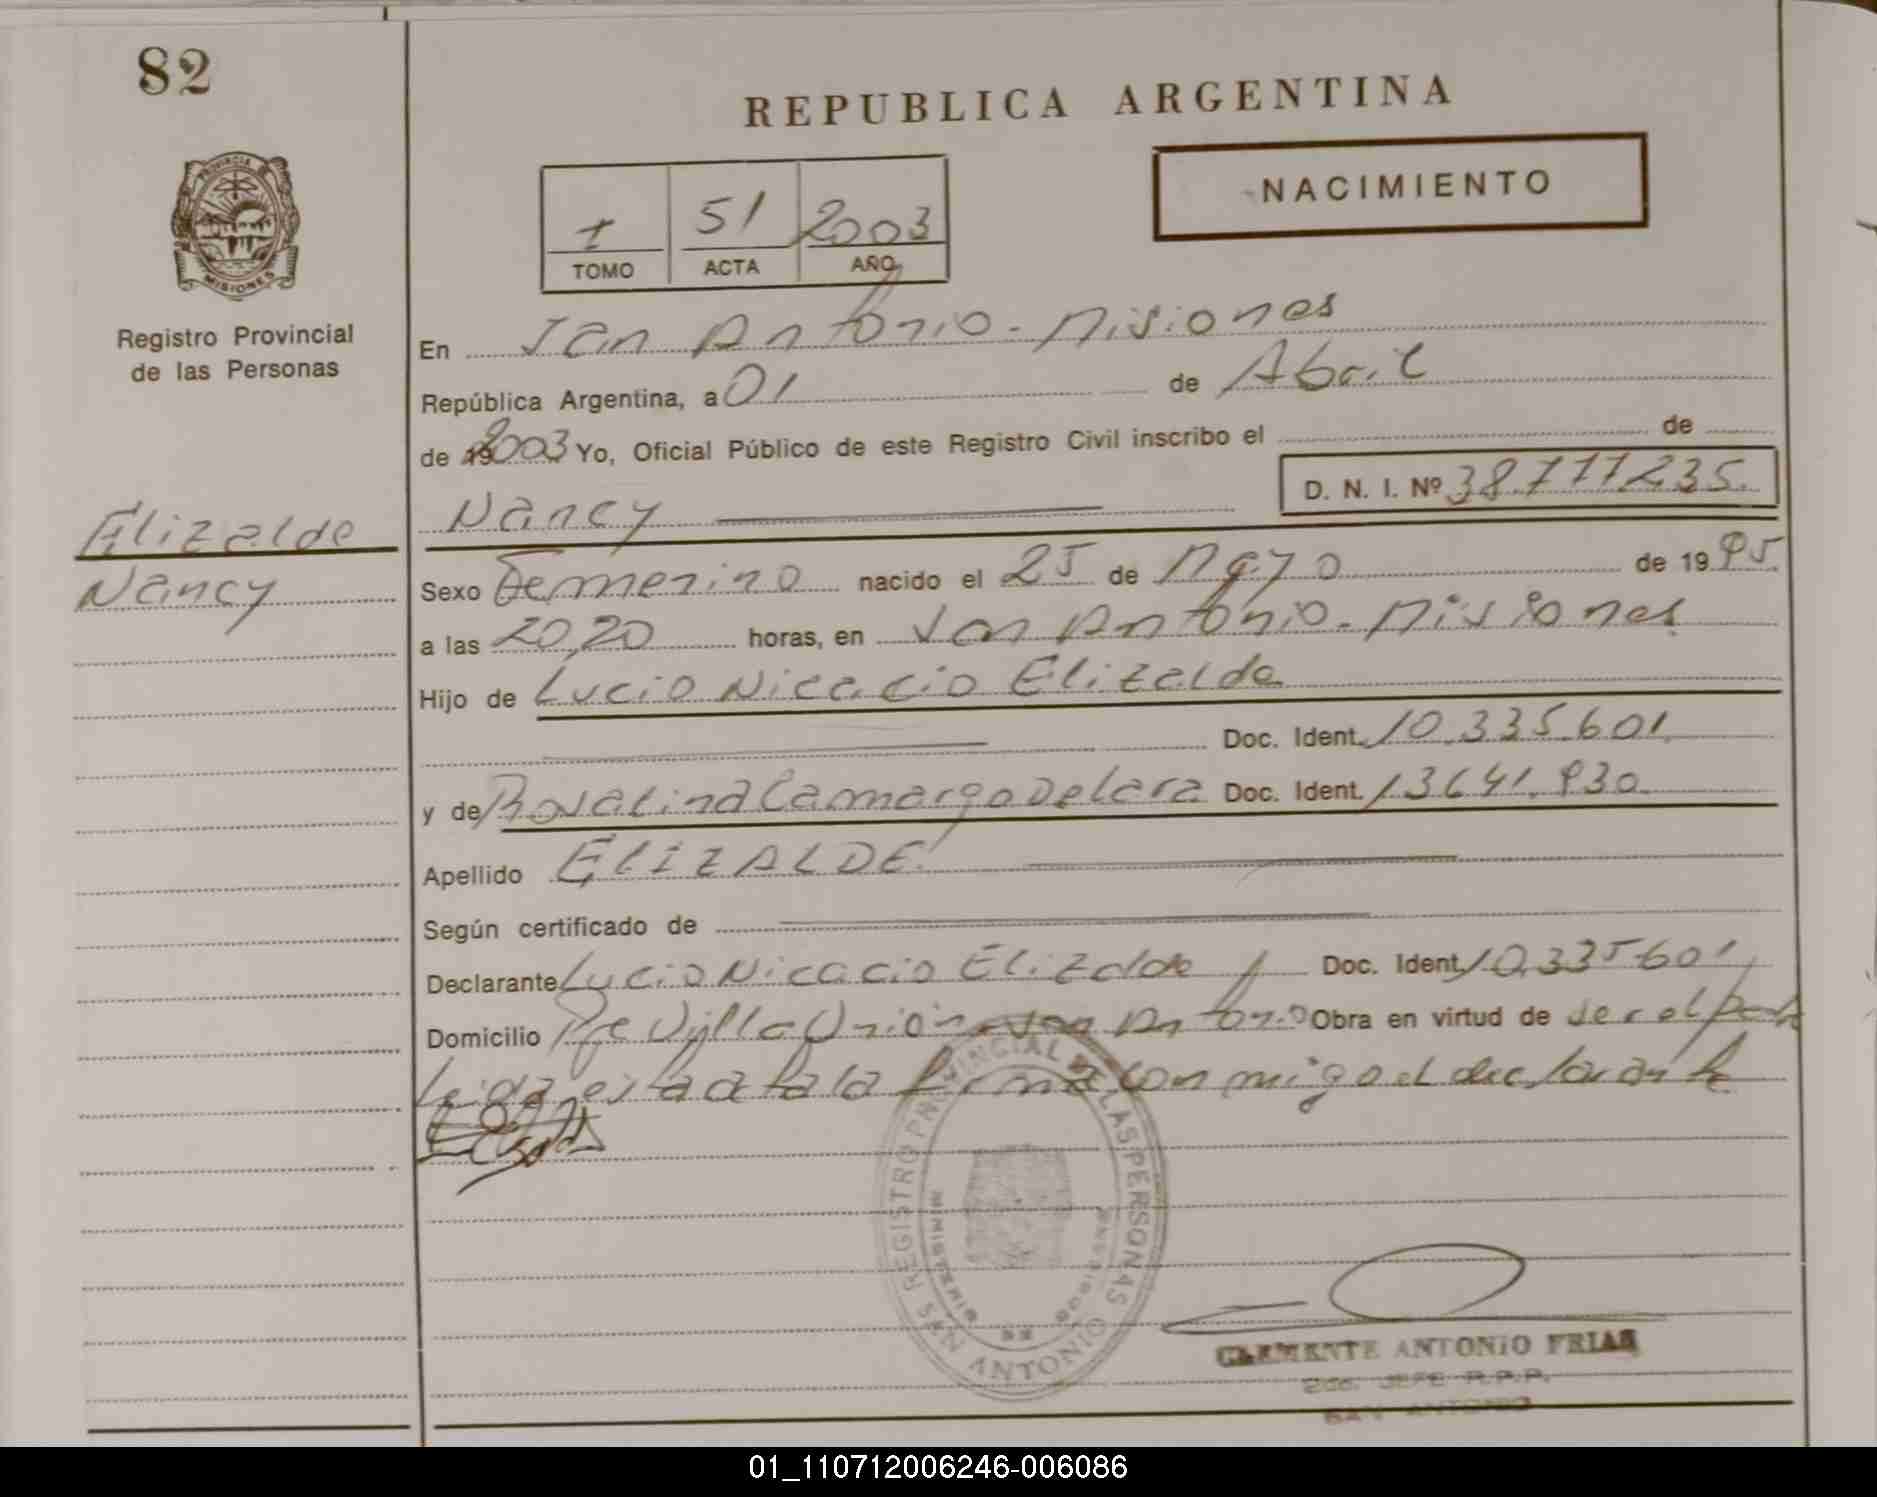 82
REPUBLICA ARGENTINA
NACIMIENTO
I 51 2003
TOMO ACTA AÑO
PROVINCIA DE MISIONES
Registro Provincial
de las Personas
En San Antonio - Misiones
República Argentina, a 01 de Abril
de 2003 Yo, Oficial Público de este Registro Civil inscribo el de
D. N. I. Nº 38.777.235.
Elizalde
Nancy
Nancy
Sexo Femenino nacido el 25 de Mayo de 1995
a las 20,20 horas, en San Antonio - Misiones
Hijo de Lucio Nicacio Elizalde
Doc. Ident. 10.335.601
y de Rosalina Camargo De Lara Doc. Ident. 13641.930
Apellido ELIZALDE
Según certificado de
Declarante Lucio Nicacio Elizalde Doc. Ident. 10.335601
Domicilio Villa Unión San Antonio Obra en virtud de ser el
Leida esta acta la firma conmigo el declarante
REGISTRO PROVINCIAL DE LAS PERSONAS
MISIONES
SAN ANTONIO
CLEMENTE ANTONIO FRIAS
2do. JEFE R.P.P.
SAN ANTONIO
01_110712006246-006086